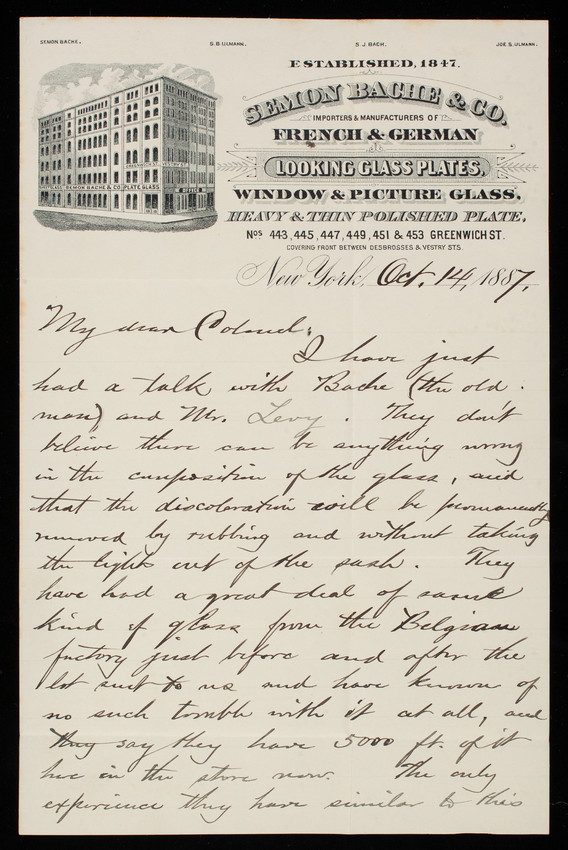 SEMON BACHE.
S.B. ULMANN.
S.J. BACH.
JOS. S. ULMANN.
ESTABLISHED, 1847.
SEMON BACHE & CO.
IMPORTERS & MANUFACTURERS OF
FRENCH & GERMAN
LOOKING GLASS PLATES,
WINDOW & PICTURE GLASS,
HEAVY & THIN POLISHED PLATE,
Nos 443, 445, 447, 449, 451 & 453 GREENWICH ST.
COVERING FRONT BETWEEN DESBROSSES & VESTRY STS.
SEMON BACHE & CO. PLATE GLASS
OFFICE
New York, Oct. 14, 1887.
My dear Colonel:
I have just
had a talk with Bache (the old
man) and Mr. Levy. They don't
believe there can be anything wrong
in the composition of the glass, and
that the discoloration will be permanently
removed by rubbing and without taking
the light out of the sash. They
have had a great deal of same
kind of glass from the Belgian
factory just before and after the
lot sent to us and have known of
no such trouble with it at all, and
they say they have 5000 ft. of it
here in the store now. The only
experience they have similar to this